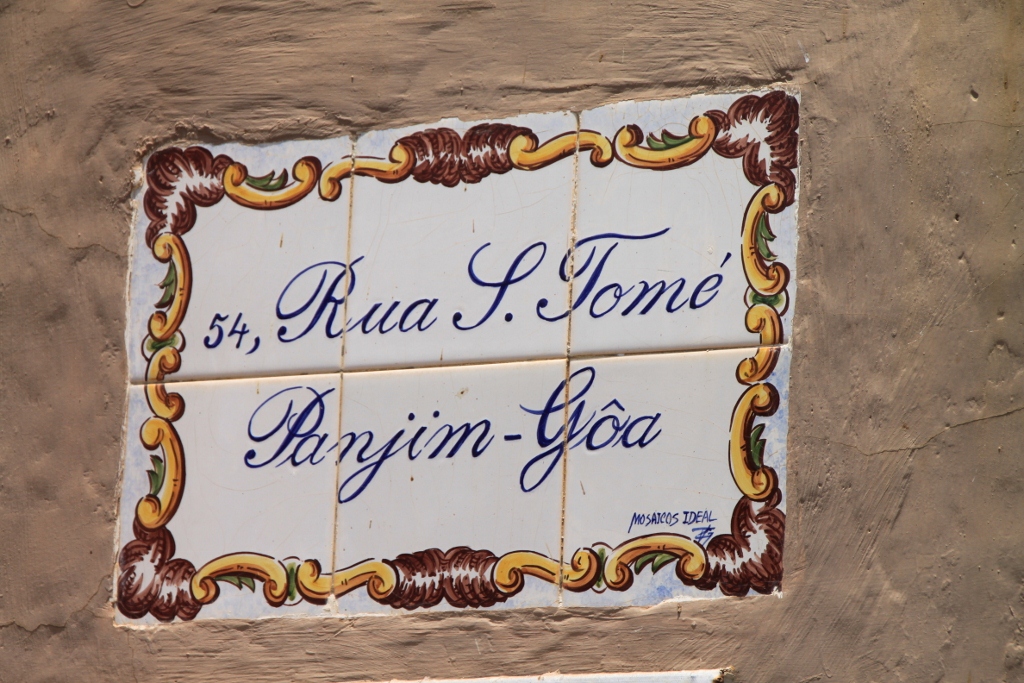 54, Rua S. Tomé
Panjim-Gôa
MOSAICOS IDEAL